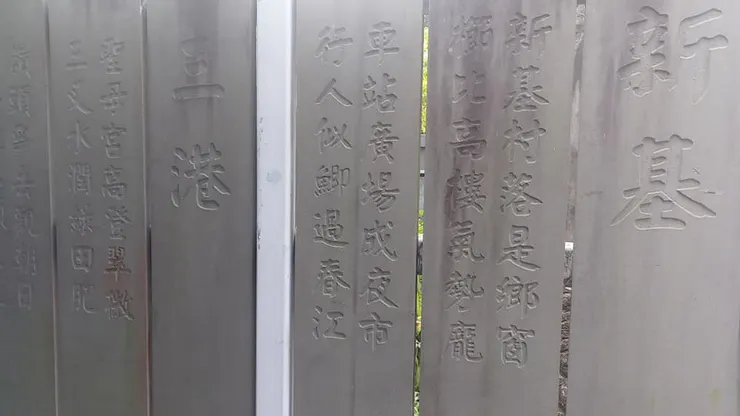 新基
新基村落是鄉窗
櫛比高樓氣勢龐
車站廣場成夜市
行人似鯽過春江
玉港
聖母宮高登翠微
三叉水潤綠田肥
頭朝日